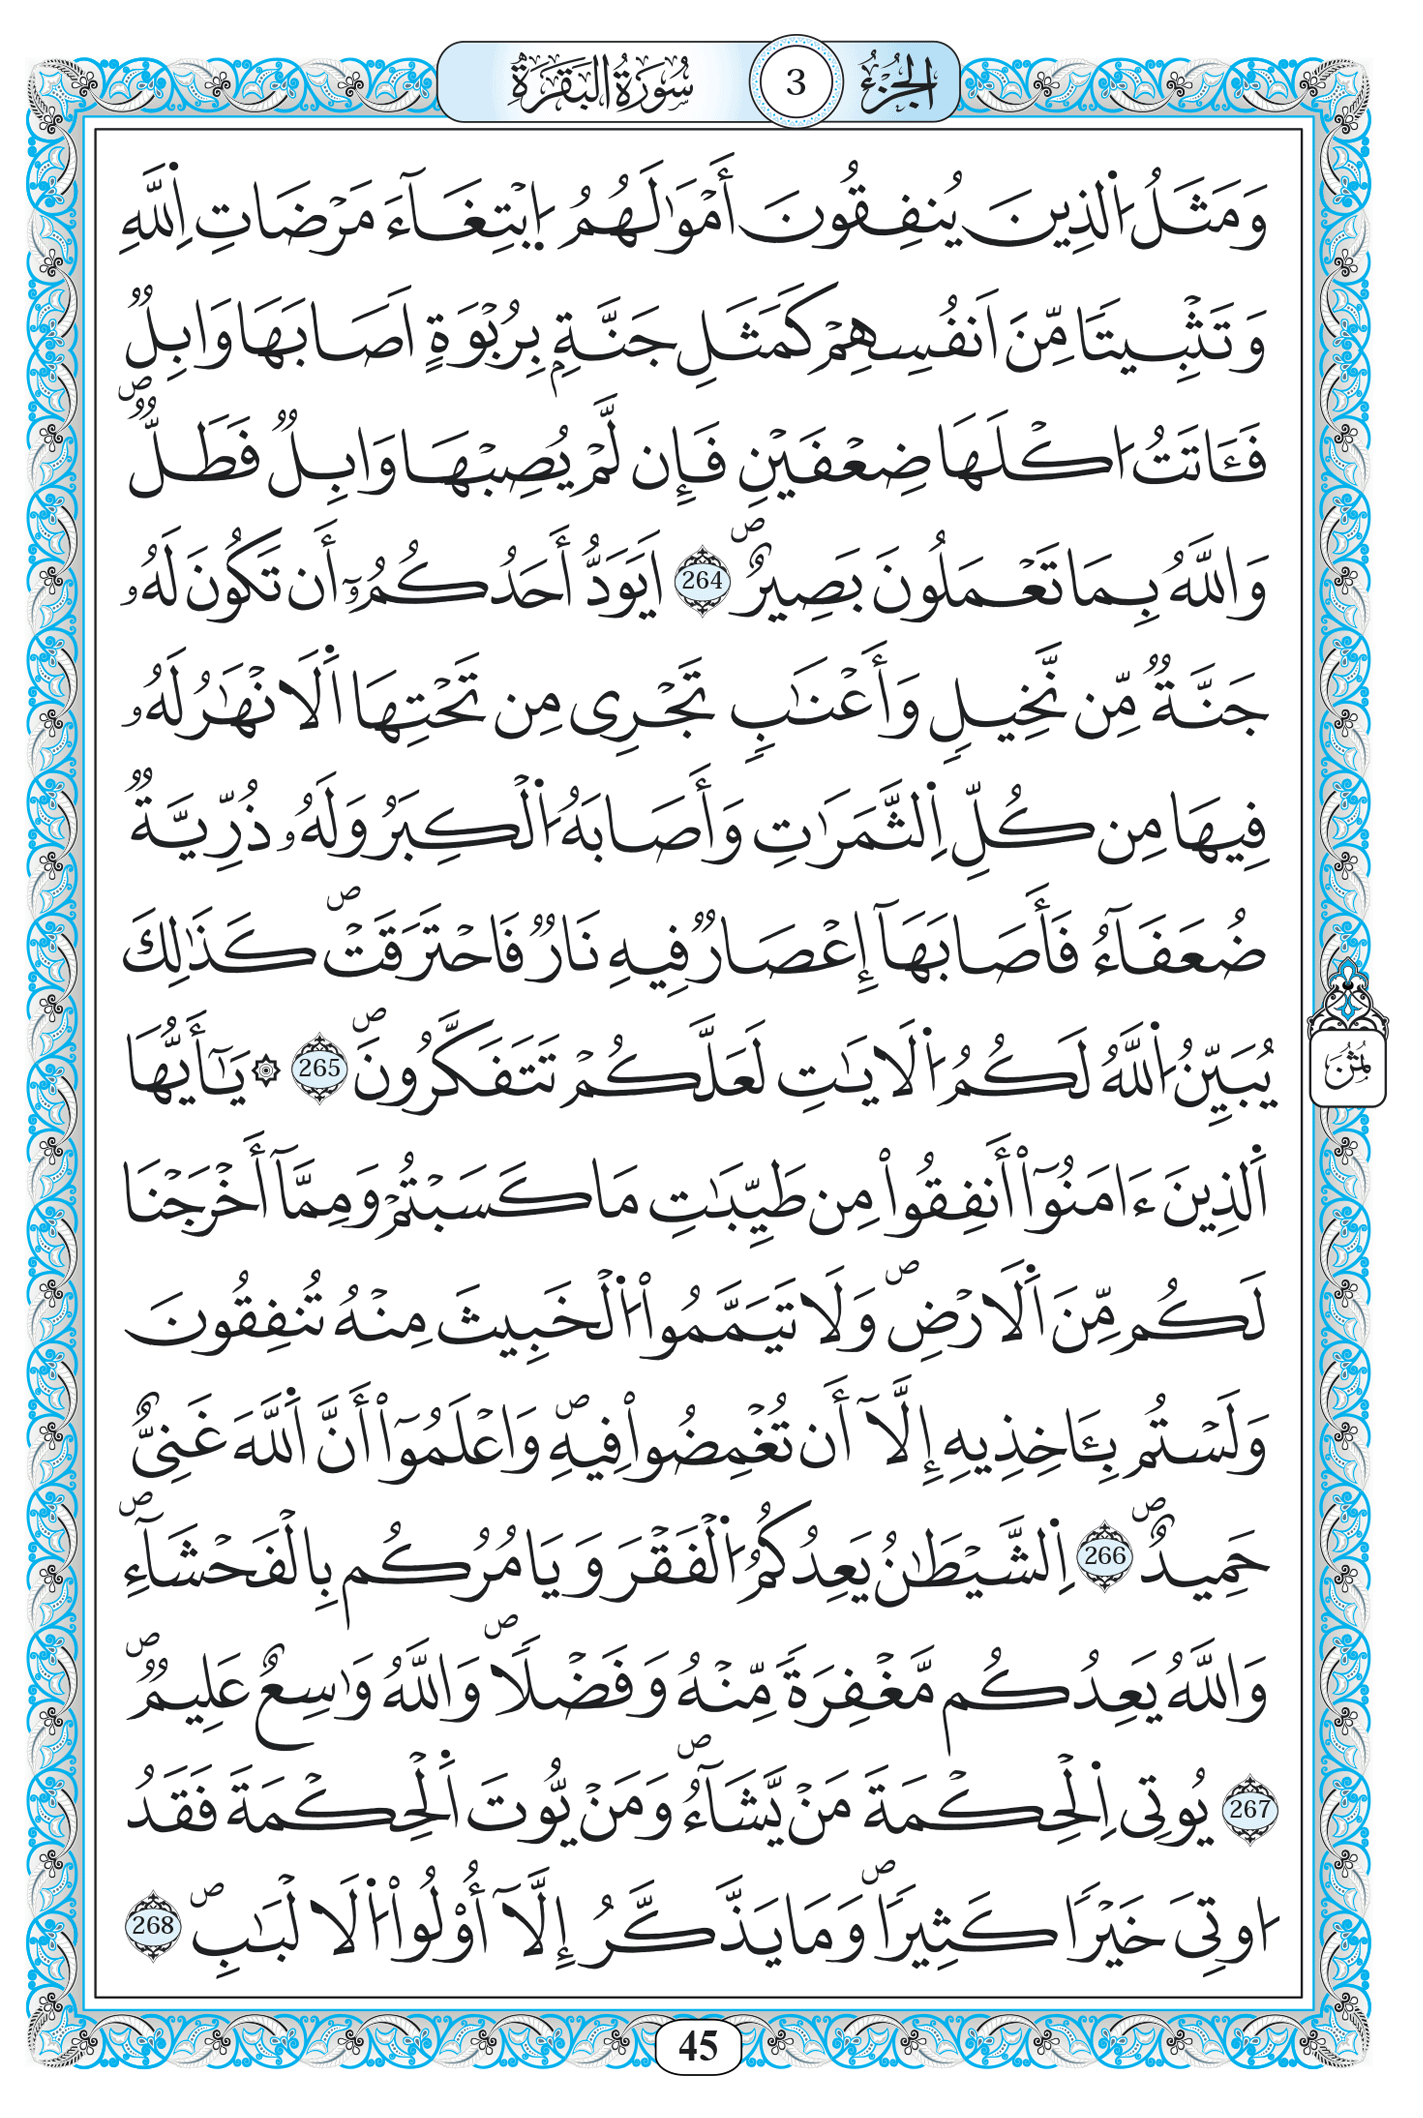 الجزء 3 سورة البقرة
وَمَثَلُ اُ۬لذِينَ يُنفِقُونَ أَمْوَٰلَهُمُ اُ۪بْتِغَآءَ مَرْضَاتِ اِ۬للَّهِ
وَتَثْبِيتاٗ مِّنَ اَنفُسِهِمْ كَمَثَلِ جَنَّةِۢ بِرُبْوَةٍ اَصَابَهَا وَابِلٞ
فَـَٔاتَتُ اُكْلَهَا ضِعْفَيْنِ فَإِن لَّمْ يُصِبْهَا وَابِلٞ فَطَلّٞۖ
وَاللَّهُ بِمَا تَعْمَلُونَ بَصِيرٌۖ 264 اَيَوَدُّ أَحَدُكُمُۥٓ أَن تَكُونَ لَهُۥ
جَنَّةٞ مِّن نَّخِيلٖ وَأَعْنَٰبٖ تَجْرِى مِن تَحْتِهَا اَ۬لَانْهَٰرُ لَهُۥ
فِيهَا مِن كُلِّ اِ۬لثَّمَرَٰتِ وَأَصَابَهُ اُ۬لْكِبَرُ وَلَهُۥ ذُرِّيَّةٞ
ضُعَفَآءُ فَأَصَابَهَآ إِعْصَارٞ فِيهِ نَارٞ فَاحْتَرَقَتْۖ كَذَٰلِكَ
يُبَيِّنُ اُ۬للَّهُ لَكُمُ اُ۬لَايَٰتِ لَعَلَّكُمْ تَتَفَكَّرُونَۖ 265 ۞ يَٰٓأَيُّهَا
ثُمُن
اَ۬لذِينَ ءَامَنُوٓاْ أَنفِقُواْ مِن طَيِّبَٰتِ مَا كَسَبْتُمْ وَمِمَّآ أَخْرَجْنَا
لَكُم مِّنَ اَ۬لَارْضِۖ وَلَا تَيَمَّمُواْ اُ۬لْخَبِيثَ مِنْهُ تُنفِقُونَ
وَلَسْتُم بِـَٔاخِذِيهِ إِلَّآ أَن تُغْمِضُواْ فِيهِۖ وَاعْلَمُوٓاْ أَنَّ اَ۬للَّهَ غَنِىٌّ
حَمِيدٌۖ 266 اِ۬لشَّيْطَٰنُ يَعِدُكُمُ اُ۬لْفَقْرَ وَيَامُرُكُم بِالْفَحْشَآءِۖ
وَاللَّهُ يَعِدُكُم مَّغْفِرَةٗ مِّنْهُ وَفَضْلاٗۖ وَاللَّهُ وَٰسِعٌ عَلِيمٞۖ
267 يُوتِى اِ۬لْحِكْمَةَ مَنْ يَّشَآءُۖ وَمَنْ يُّوتَ اَ۬لْحِكْمَةَ فَقَدُ
اُوتِىَ خَيْراٗ كَثِيراٗۖ وَمَا يَذَّكَّرُ إِلَّآ أُوْلُواْ اُ۬لَالْبَٰبِۖ 268
45